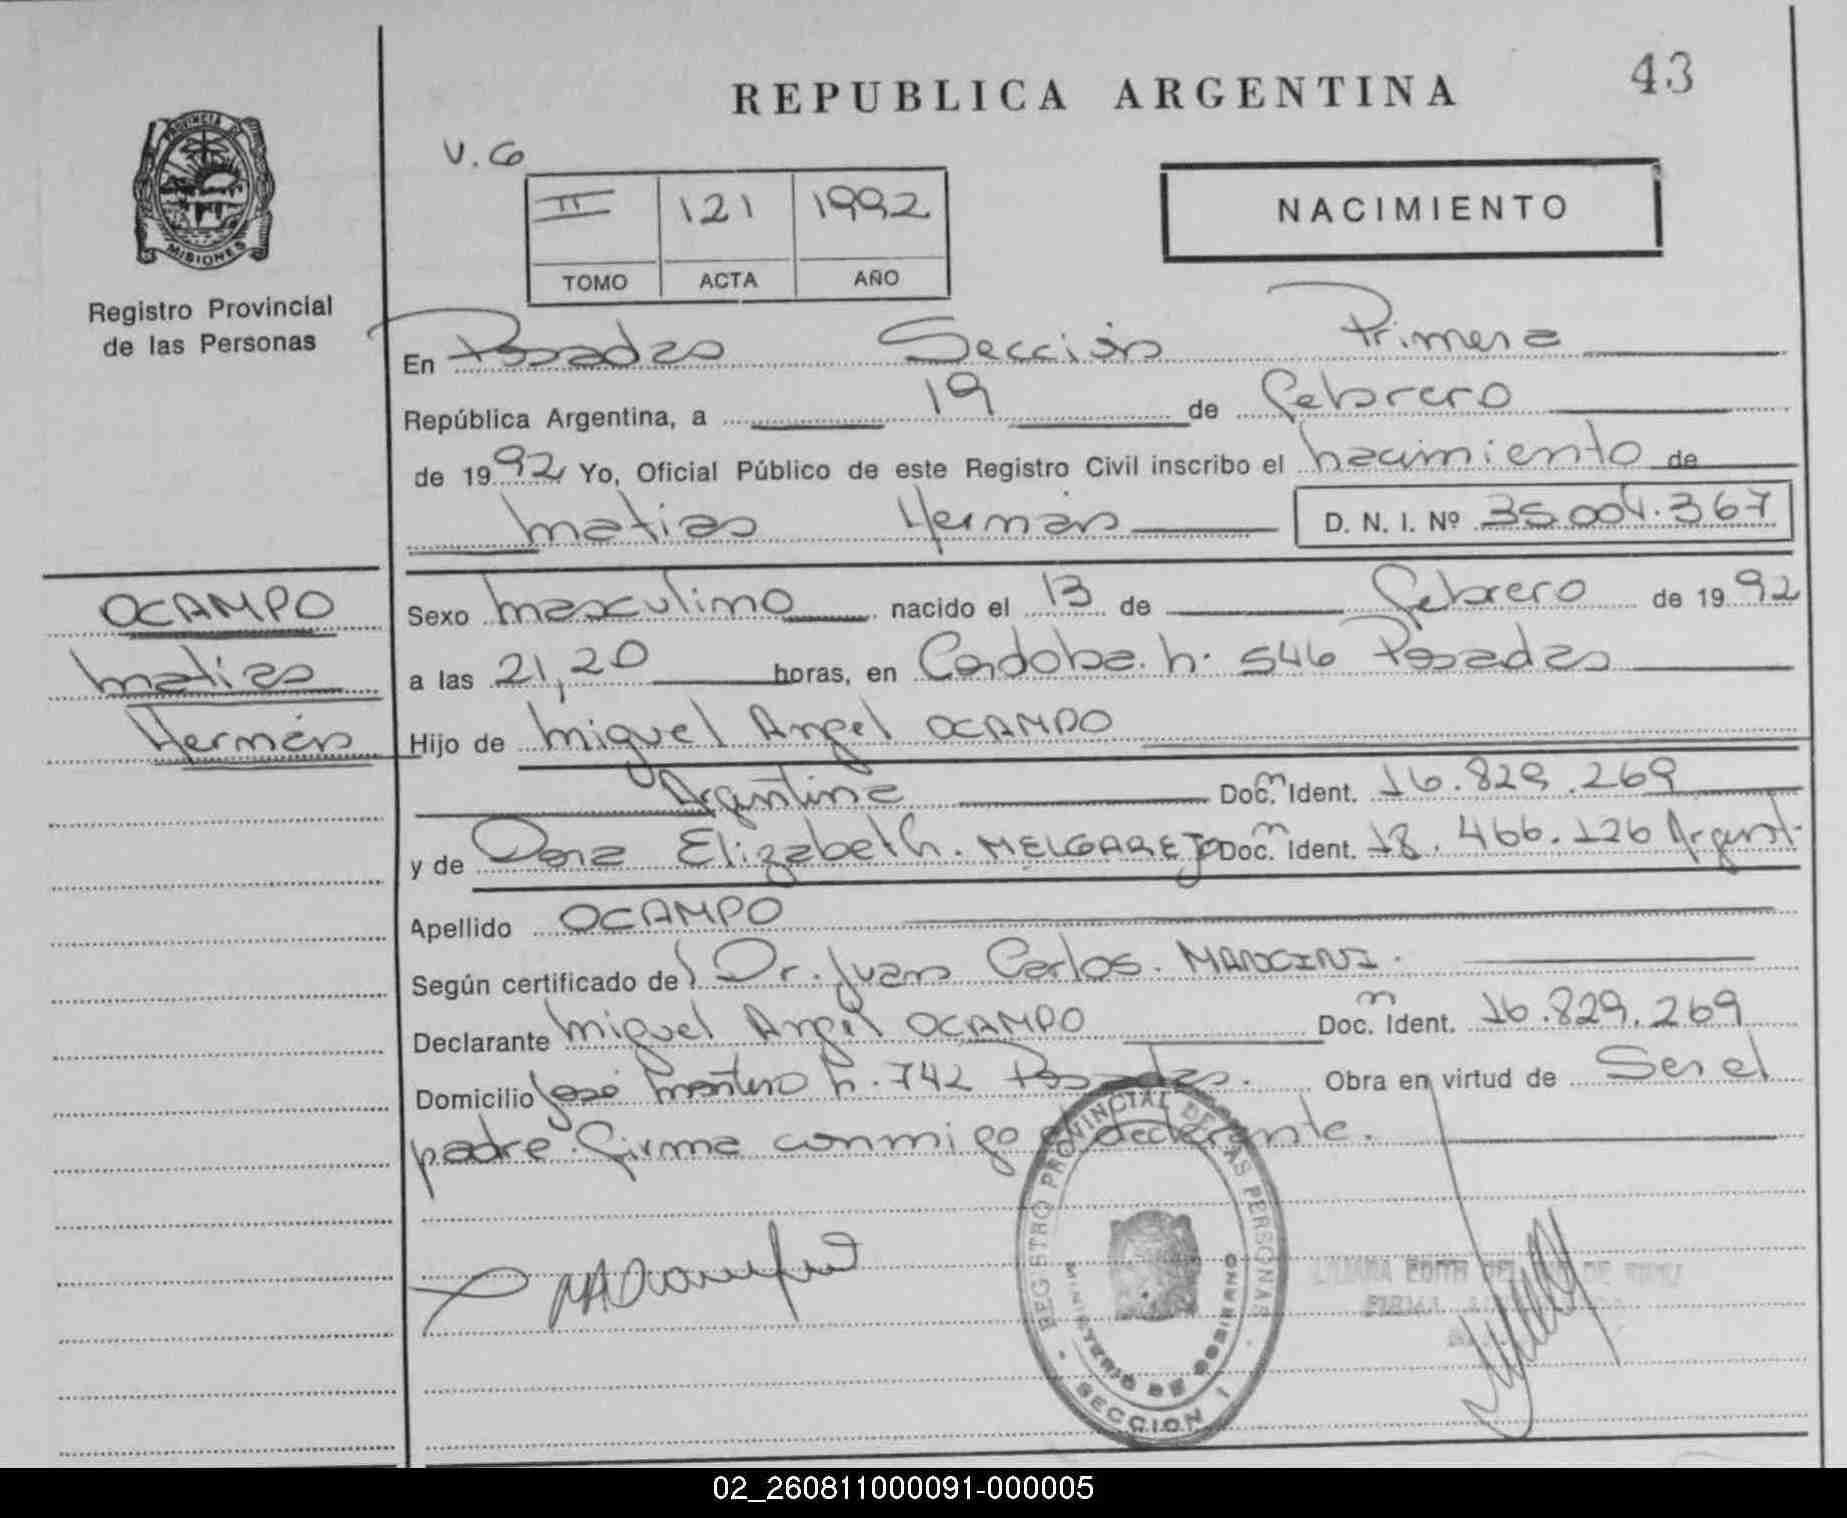 43
REPUBLICA ARGENTINA
PROVINCIA DE
MISIONES
Registro Provincial
de las Personas
V. G
II 121 1992
TOMO ACTA AÑO
NACIMIENTO
En Posadas Sección Primera
República Argentina, a 19 de febrero
de 1992 Yo, Oficial Público de este Registro Civil inscribo el nacimiento de
Matias Hernán D. N. I. Nº 35.004.367
OCAMPO
Matias
Hernán
Sexo masculino nacido el 13 de febrero de 1992
a las 21,20 horas, en Cordoba. n. 546 Posadas
Hijo de Miguel Angel OCAMPO
Argentina Doc. Ident. 16.829.269
y de Dora Elizabeth. MELGAREJO Doc. Ident. 18.466.126 Argent.
Apellido OCAMPO
Según certificado del Dr. Juan Carlos. MANCINI.
Declarante Miguel Angel OCAMPO Doc. Ident. 16.829.269
Domicilio José n. 742 Posadas. Obra en virtud de Ser el
padre. firma conmigo el declarante.
REGISTRO PROVINCIAL DE LAS PERSONAS
MINISTERIO DE GOBIERNO
SECCION 1
LILIANA EDITH DE
02_260811000091-000005